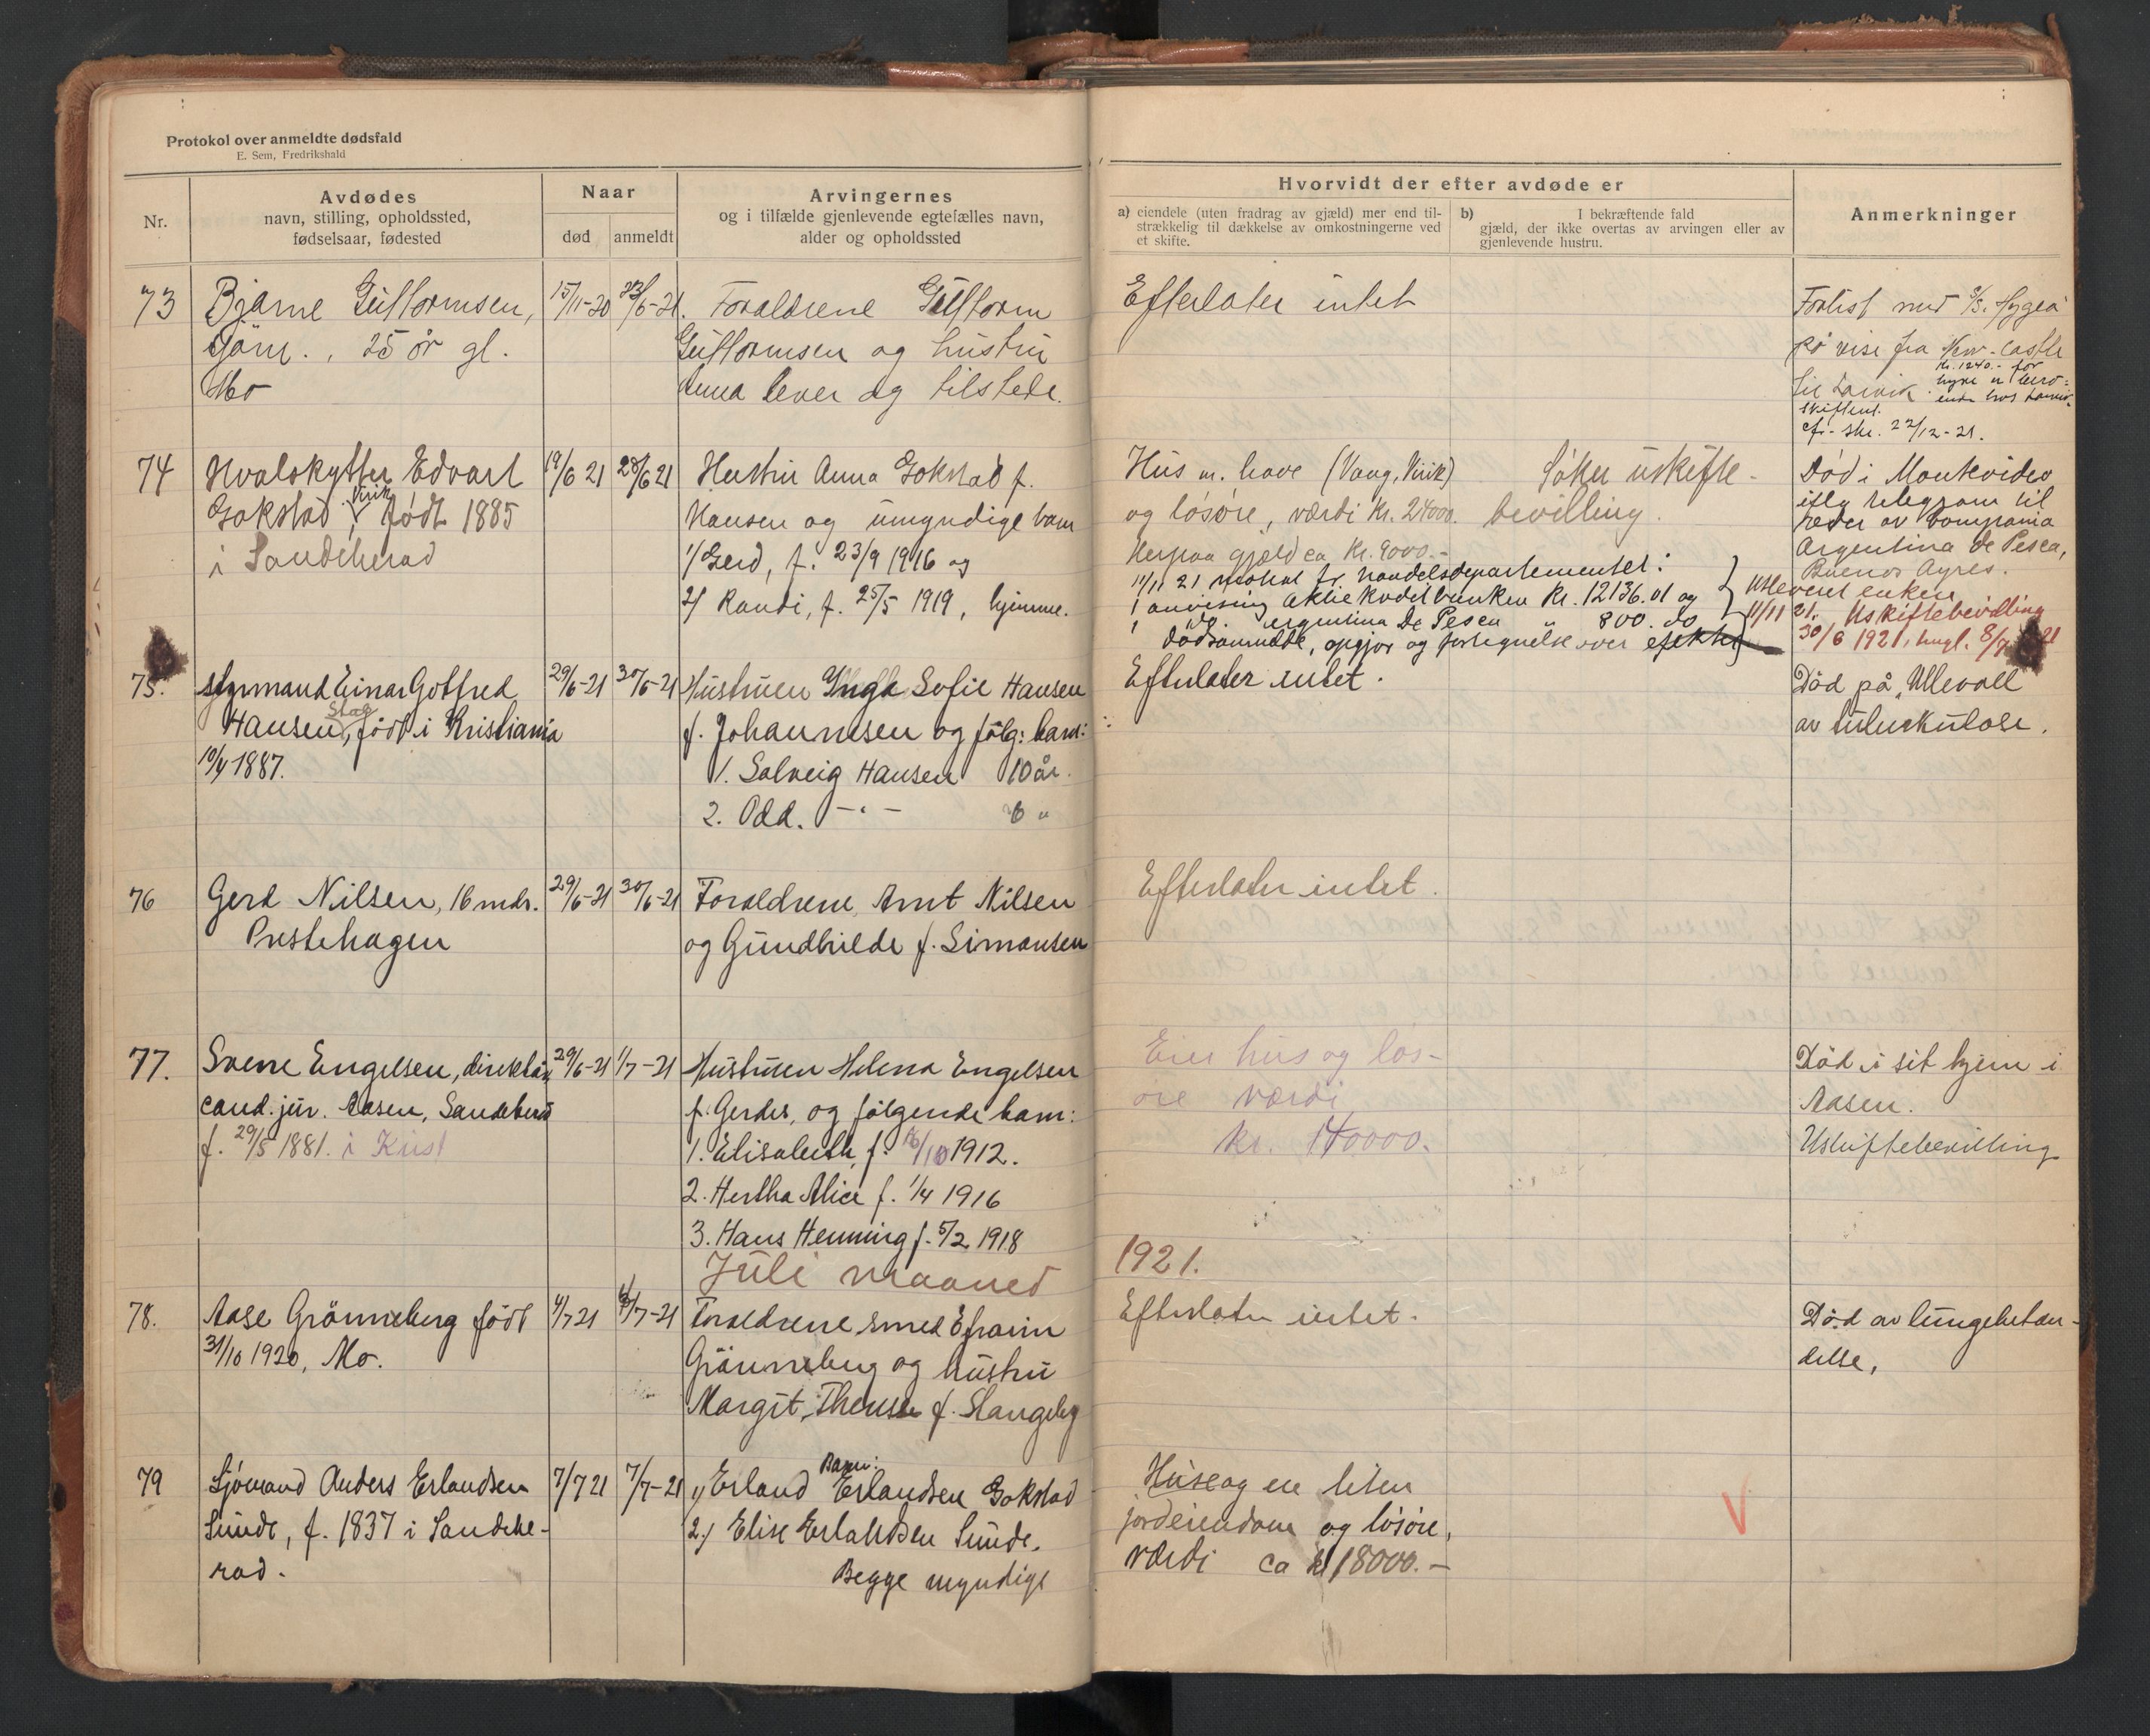 Protokol over anmeldte dødsfald
E. Sem, Fredrikshald
Nr.
Avdødes
navn, stilling, opholdssted,
fødselsaar, fødested
Naar
død
anmeldt
Arvingernes
og i tilfælde gjenlevende egtefælles navn,
alder og opholdssted
Hvorvidt der efter avdøde er
a) eiendele (uten fradrag av gjæld) mer end til-
strækkelig til dækkelse av omkostningerne ved
et skifte.
b) I bekræftende fald
gjæld, der ikke overtas av arvingen eller av
gjenlevende hustru.
Anmerkninger
73
Bjarne Guttormsen,
25 år gl.
Mo
15/11-20
23/6-21.
Forældrene Guttorm
Guttormsen og hustru
Anna lever og tilstede.
Efterlater intet
Forlist med S/S. Hygea
på reise fra New-castle
til Larvik
kr. 1240.- for
hyre er bero-
ende hos Larvik
skifteret.
cfr. skr. 22/12-21.
74
Hvalskytter Edvart
Gokstad, Virik født 1885
i Sandeherad
19/6 21
28/6 21
Hustru Anna Gokstad f.
Hansen og umyndige barn
1/ Gerd, f. 23/9 1916 og
2/ Randi, f. 25/5 1919, hjemme.
Hus m. have (Vang, Virik)
og løsøre, værdi kr. 24000.
Herpaa gjæld ca kr. 9000.-
Søker uskifte-
bevilling.
11/11 21 motat fr. handelsdepartementet:
1 anvisning Aktiekreditbanken kr. 12136.01 og
1 do. Argentina De Pesca " 800.00
Dødsanmeldelse, opgjør og fortegnelse over efekter
Utleveret enken
11/11 21.
Død i Montevideo
iflg telegram til
reder av Compania
Argentina de Pesca,
Buenos Ayres.
Uskiftebevilling
30/6 1921, tingl. 8/7 21
75.
Styrmand Einar Gotfred
Hansen, født i Kristiania
10/4 1887.
29/6-21
30/6-21
Hustruen Inga Sofie Hansen
f. Johannesen og følg: barn:
1. Solveig Hansen 10 år.
2. Odd. -"- 6 "
Efterlater intet.
Død på Ullevoll
av tuberkulose.
76
Gerd Nilsen, 16 mdr.
Prestehagen
29/6-21
30/6-21
Forældrene Arnt Nilsen
og Gundhilde f. Simonsen
Efterlater intet.
77.
Sverre Engelsen, direktør,
cand. jur. Aasen, Sandeherred
f. 29/5 1881. i Krist
29/6-21
1/7-21
Hustruen Helena Engelsen
f. Gerdes, og følgende barn:
1. Elisabeth, f. 16/10 1912.
2. Hertha Alice f. 1/4 1916
3. Hans Henning f. 5/2 1918
Eier hus og løs-
øre værdi
kr. 140000.
Død i sit hjem i
Aasen.
Uskiftebevilling
Juli maaned
1921.
78.
Aase Grønneberg født
31/10 1920, Mo.
4/7 21
6/7-21
Forældrene smed Efraim
Grønneberg og hustru
Margit, Therese f. Stangeby
Efterlater intet.
Død av lungebetæn-
delse,
79
Sjømand Anders Erlandsen
Sunde, f. 1837 i Sandehe-
rad.
7/7 21
7/7-21
Barn:
1) Erland Erlandsen Gokstad
2.) Elise Erlandsen Sunde.
Begge myndige
Huse og en liten
jordeiendom og løsøre,
værdi ca kr 18000.-